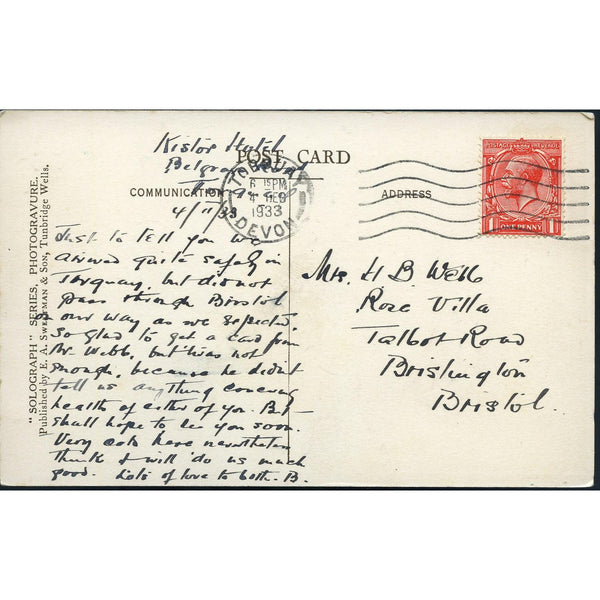 Kistor Hotel
Belgrave Road
Torquay
4/11/33
POST CARD
COMMUNICATION
ADDRESS
TORQUAY
6 15PM
4 DEC
1933
DEVON
POSTAGE REVENUE
1 ONE PENNY 1
Just to tell you we
arrived quite safely in
Torquay, but did not
pass through Bristol
on our way as we expected.
So glad to get a card from
Mr. Webb, but 'twas not
enough, because he didn't
tell us anything concerng
health of either of you. But
shall hope to see you soon.
Very cold here nevertheless
think it will do us much
good. Lots of love to both. B.
Mrs. H B Webb
Rose Villa
Talbot Road
Brislington
Bristol.
"SOLOGRAPH" SERIES, PHOTOGRAVURE.
Published by E. A. SWEETMAN & SON, Tunbridge Wells.